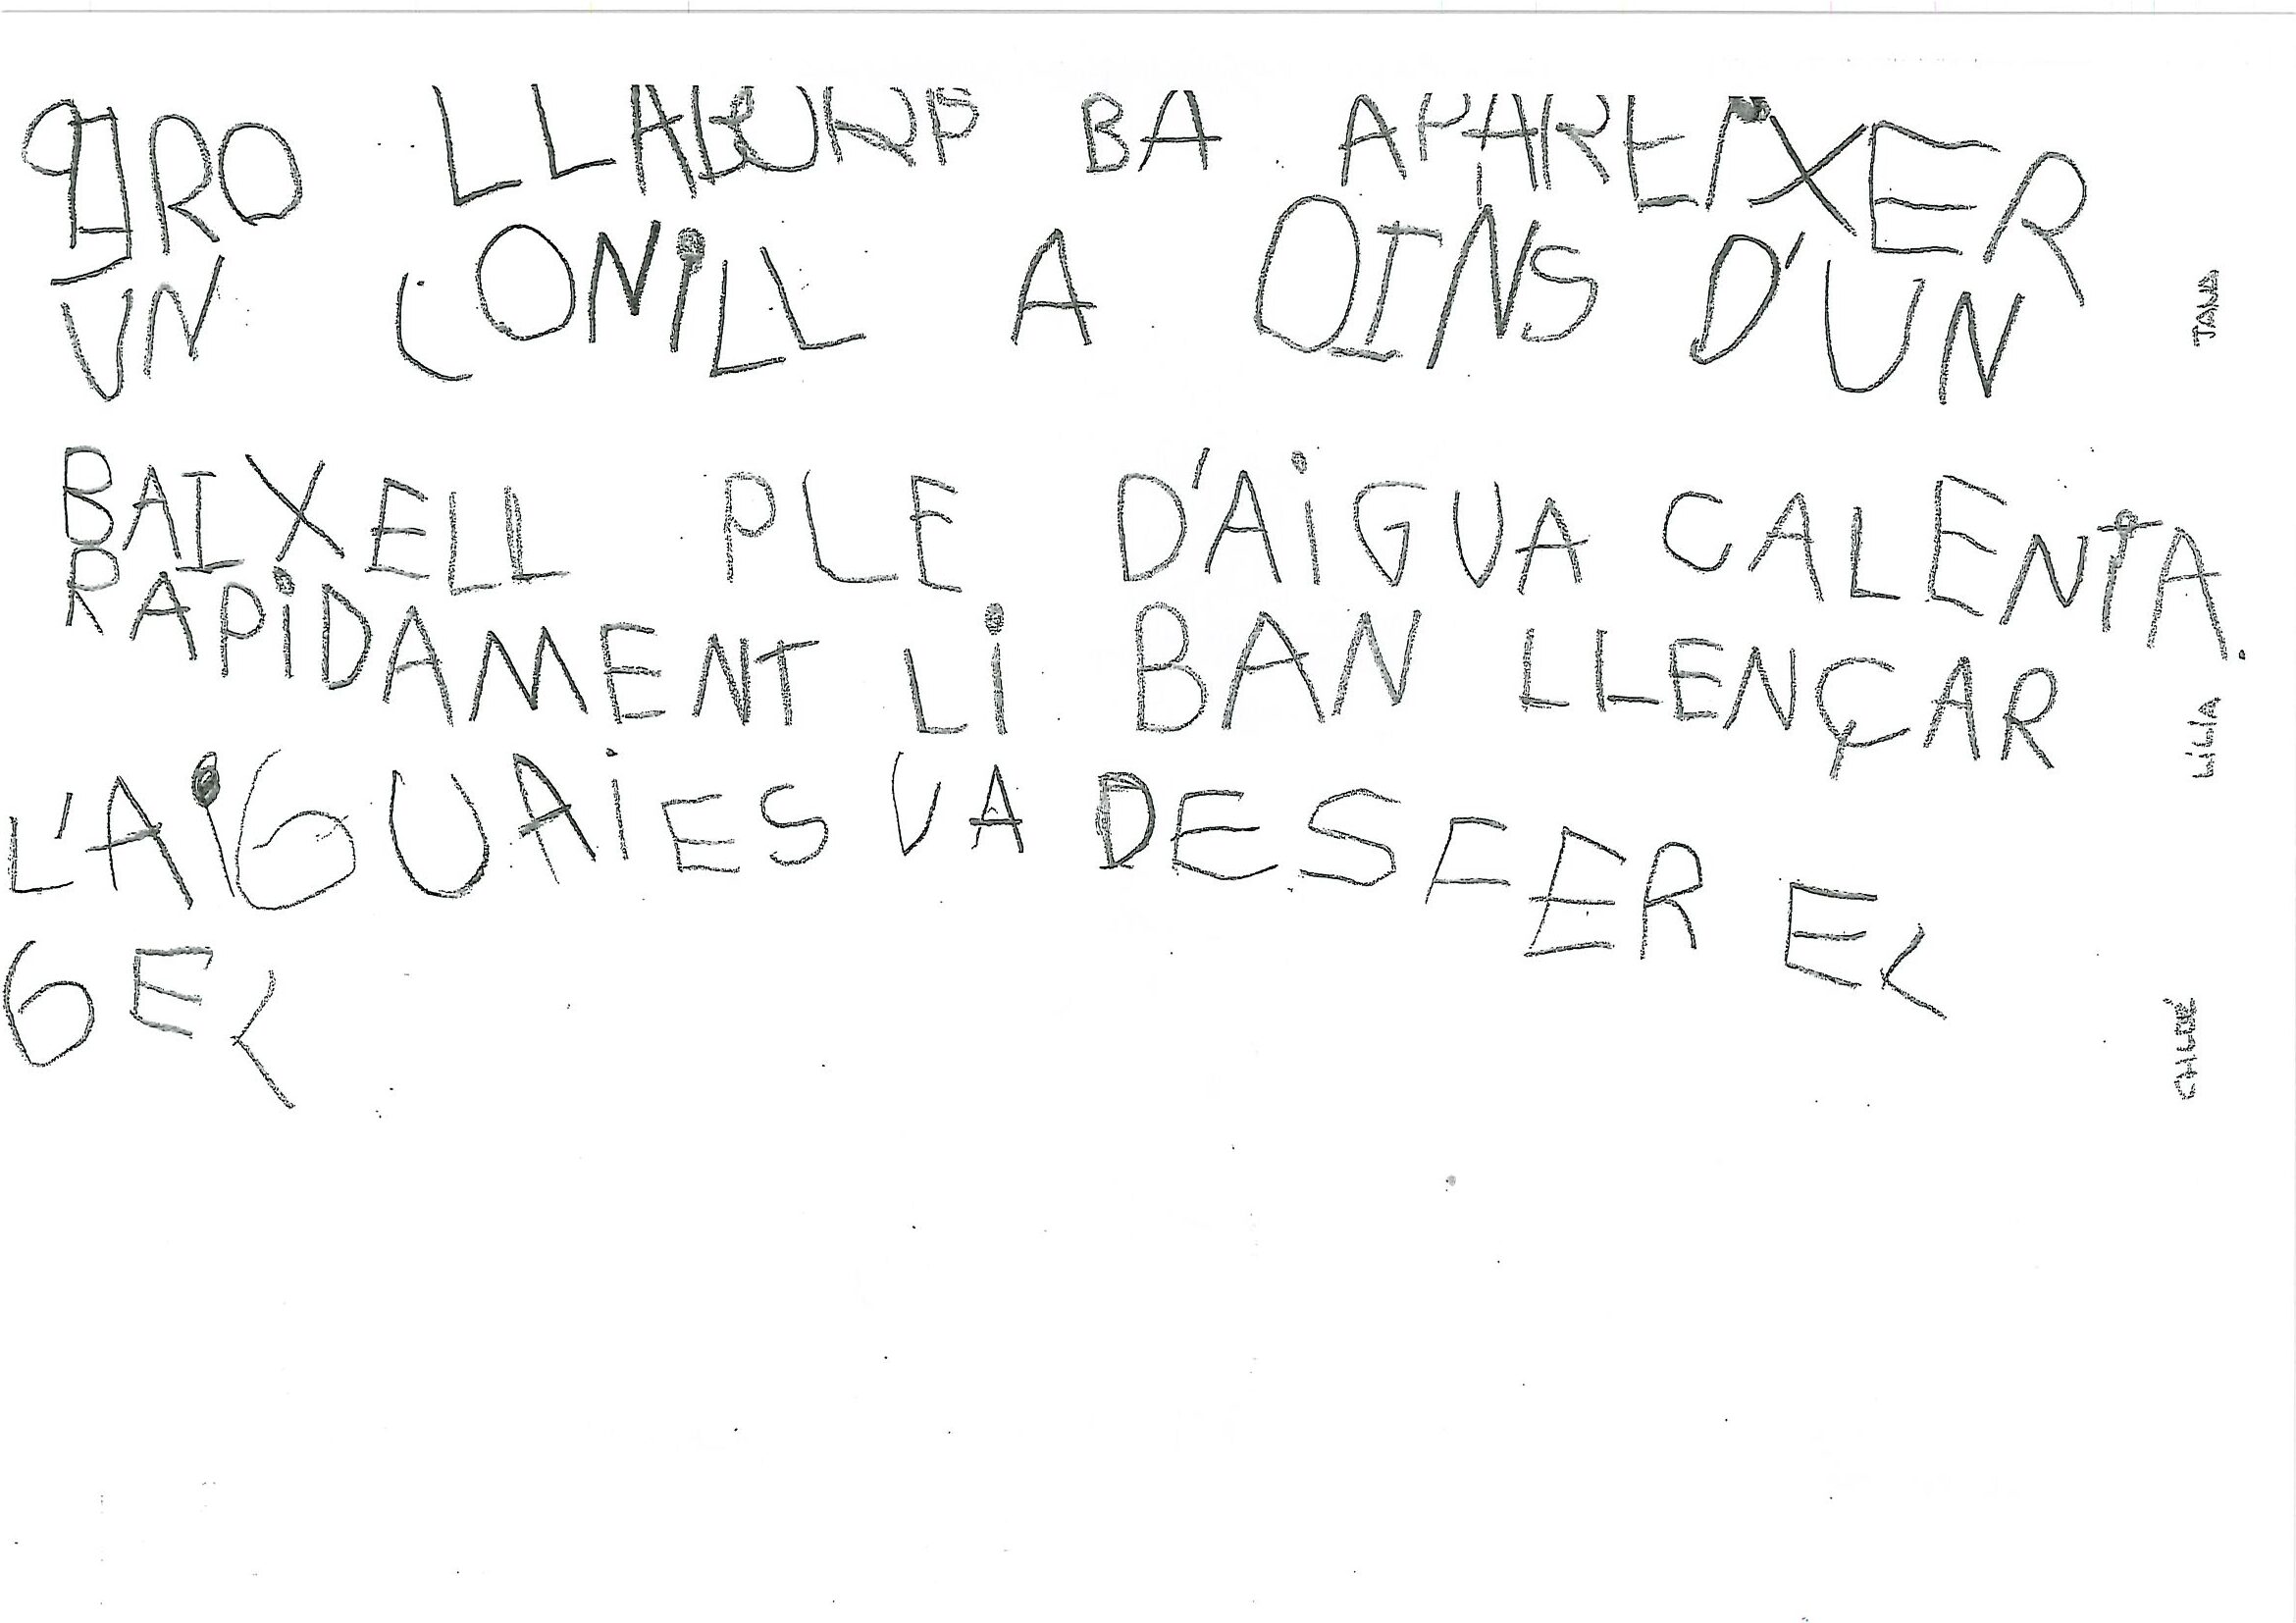 PERO LLABORS BA APAREIXER
UN CONILL A DINS D'UN
BAIXELL PLE D'AIGUA CALENTA.
RAPIDAMENT LI BAN LLENÇAR
L'AIGUAIES VA DESFER EL
GEL
JANA
LILIA
CHLOÉ